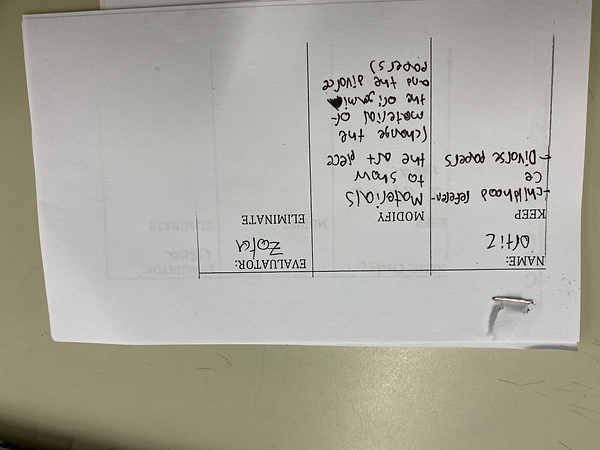 NAME:
Ortiz
EVALUATOR:
Zafer
KEEP
- childhood referen-
ce
- Divorse papers
MODIFY
Materials
to show
the art piece
(change the
material of
the origami
and the divorce
papers)
ELIMINATE